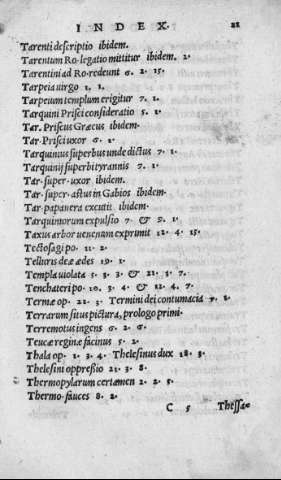 INDEX. 21
Tarenti descriptio ibidem.
Tarentum Ro·legatio mittitur ibidem. 2.
Tarentini ad Ro·redeunt 6. 2. 15.
Tarpeia uirgo 1. 1.
Tarpeium templum erigitur 7. 1.
Tarquini Prisci consideratio 5. 1.
Tar. Priscus Græcus ibidem.
Tar·Prisci uxor 6. 1.
Tarquinus superbus unde dictus 7. 1.
Tarquinij superbi tyrannis 7. 1.
Tar·super·uxor ibidem.
Tar·super·astus in Gabios ibidem.
Tar·papauera excutit ibidem.
Tarquiniorum expulsio 7. & 9. 1.
Taxus arbor uenenum exprimit 12. 4. 15.
Tectosagi po. 11. 2.
Telluris deæ ædes 19. 1.
Templa uiolata 5. 3. 3 & 21. 3. 7.
Tenchateri po. 10. 3. 4. & 12. 4. 7.
Termæ op. 22. 3. Termini dei contumacia 7. 1.
Terrarum situs pictura, prologo primi.
Terremotus ingens 6. 2. 6.
Teucæ reginæ facinus 5. 2.
Thala op. 1. 3. 4. Thelesinus dux 18. 3.
Thelesini oppressio 21. 3. 8.
Thermopylarum certamen 2. 2. 5.
Thermo·fauces 8. 2.
C 5 Thessa